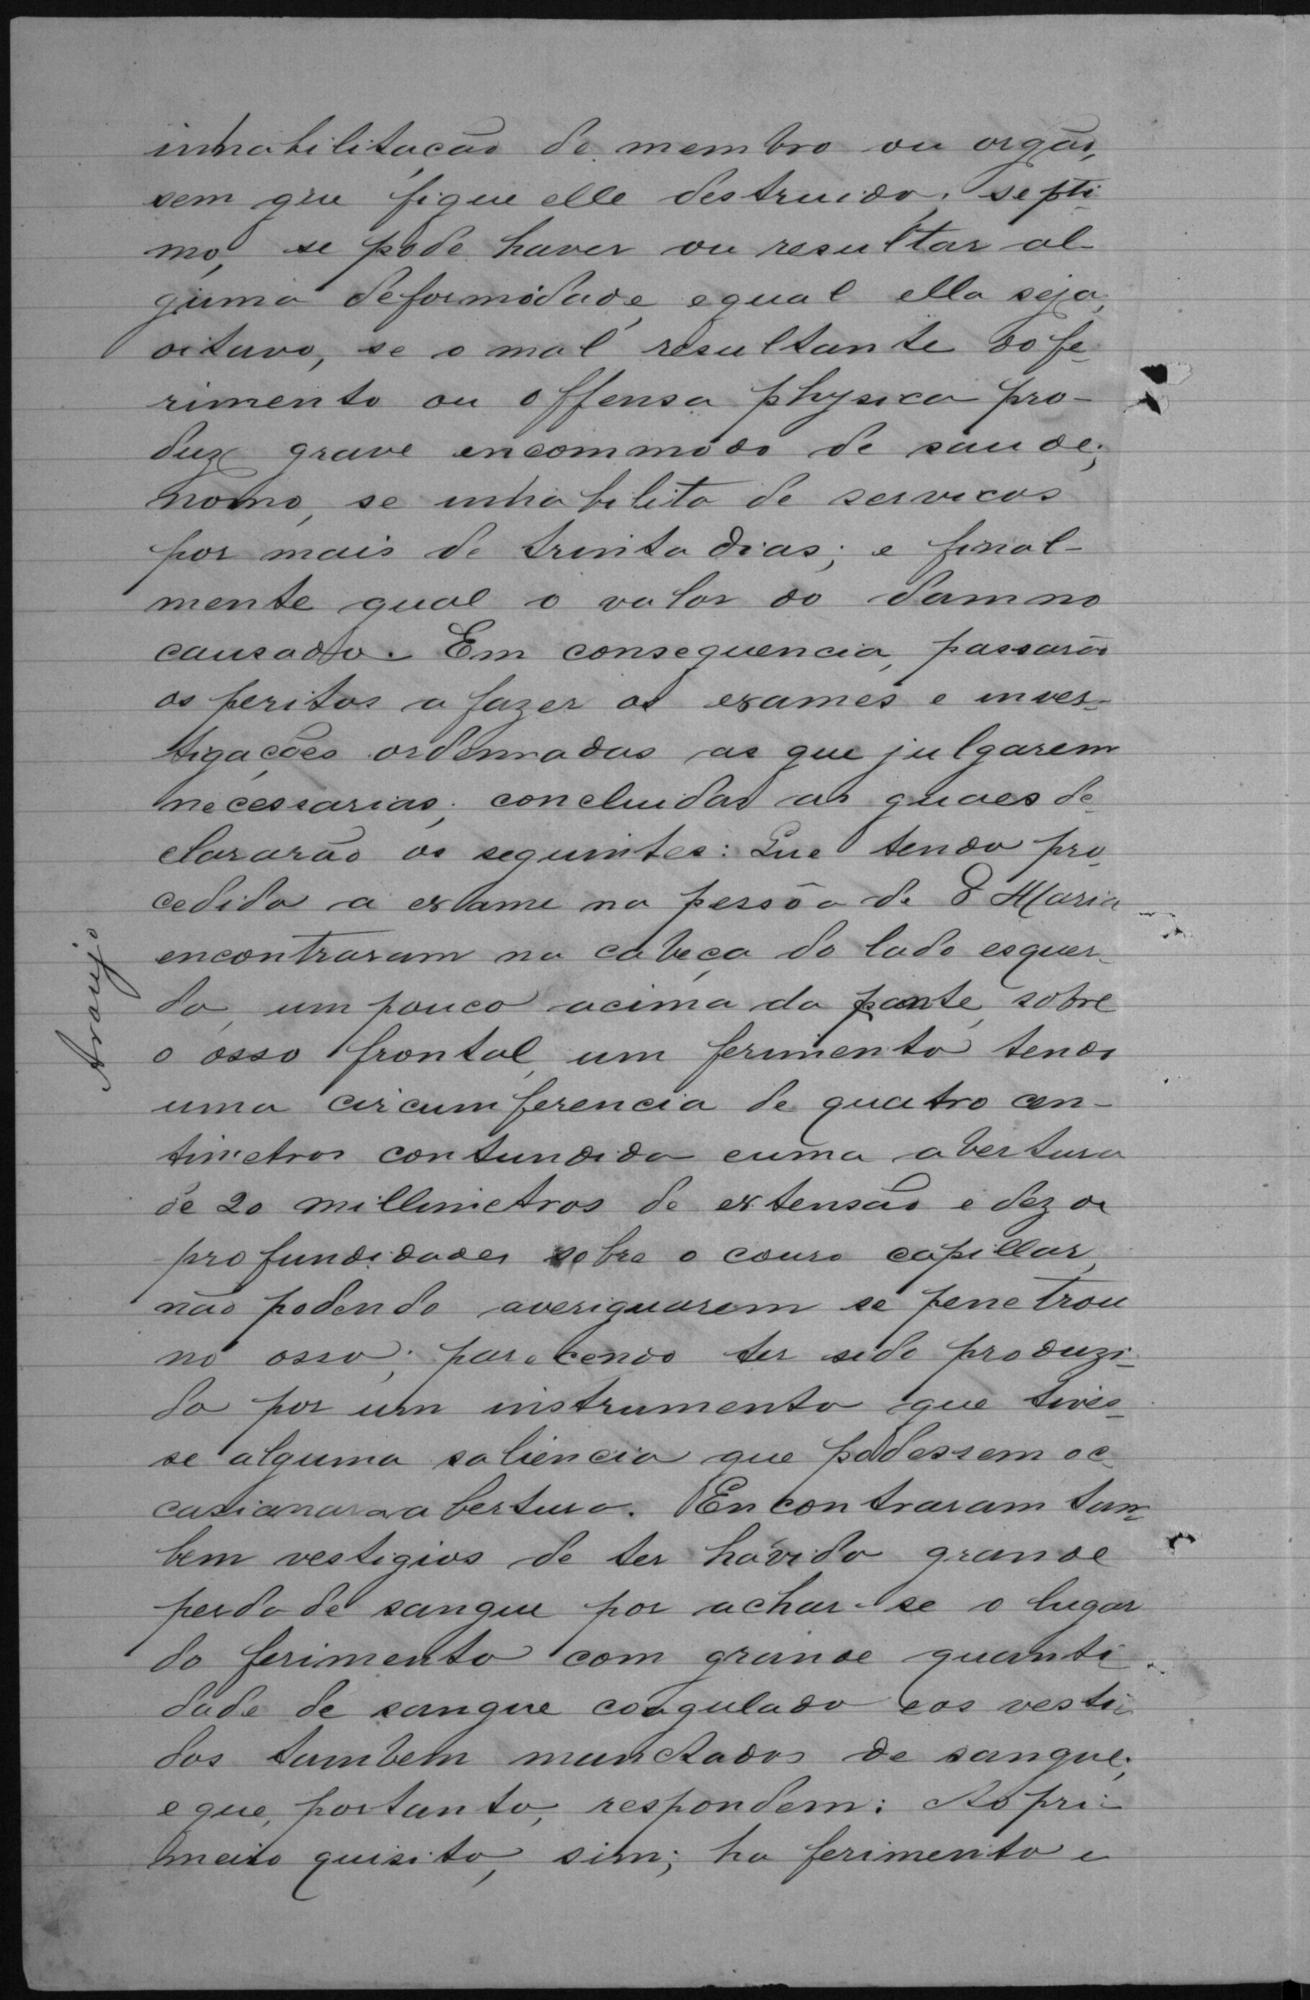 inhabilitação de membro ou orgão,
sem que fique elle destruido; septi
mo, se pode haver ou resultar al-
guma deformidade, e qual ella seja;
oitavo, se o mal resultante do fe-
rimento ou offensa physica pro-
duz grave encommodo de saude;
nono, se inhabilita de serviços
por mais de trinta dias; e final-
mente qual o valor do damno
causado. Em consequencia, passarão
os peritos a fazer os exames e inves-
tigações ordennadas as que julgarem
necessarias; concluidas as quaes de-
clararão os seguintes: Que tendo pro-
cedido a exame na pessôa de D Maria
encontraram na cabeça do lado esquer-
do, um pouco acima da fonte, sobre
o osso frontal, um ferimento tendo
uma circumferencia de quatro cen-
timetros contundido e uma abertura
de 20 millimetros de extensão e dez de
profundidades sobre o couro capillar,
não podendo averiguarem se penetrou
no osso; parecendo ter sido produzi-
do por um instrumento que tives-
se alguma saliencia que podessem oc-
casianar a abertura. Encontraram tam-
bem vestigios de ter havido grande
perda de sangue por achar-se o lugar
do ferimento com grande quanti
dade de sangue coagulado e os vesti-
dos tambem manctados de sangue;
e que, portanto, respondem: Ao pri-
meiro quisito, sim; ha ferimento e
Araujo